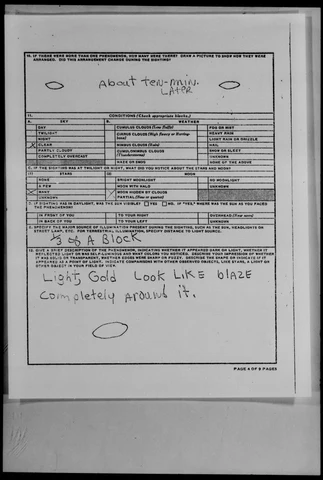 10. IF THERE WERE MORE THAN ONE PHENOMENON, HOW MANY WERE THERE? DRAW A PICTURE TO SHOW HOW THEY WERE
ARRANGED. DID THIS ARRANGEMENT CHANGE DURING THE SIGHTING?
About ten-min.
LATER
11. CONDITIONS (Check appropriate blocks.)
A. SKY B. WEATHER
DAY CUMULUS CLOUDS (Low fluffy) FOG OR MIST
TWILIGHT CIRRUS CLOUDS (High fleecy or Herringbone) HEAVY RAIN
NIGHT LIGHT RAIN OR DRIZZLE
CLEAR NIMBUS CLOUDS (Rain) HAIL
PARTLY CLOUDY CUMULONIMBUS CLOUDS (Thunderstorms) SNOW OR SLEET
COMPLETELY OVERCAST UNKNOWN
HAZE OR SMOG NONE OF THE ABOVE
C. IF THE SIGHTING WAS AT TWILIGHT OR NIGHT, WHAT DID YOU NOTICE ABOUT THE STARS AND MOON?
(1) STARS (2) MOON
NONE BRIGHT MOONLIGHT NO MOONLIGHT
A FEW MOON WITH HALO UNKNOWN
MANY MOON HIDDEN BY CLOUDS
UNKNOWN PARTIAL (New or quarter)
D. IF SIGHTING WAS IN DAYLIGHT, WAS THE SUN VISIBLE? YES NO IF "YES," WHERE WAS THE SUN AS YOU FACED
THE PHENOMENON?
IN FRONT OF YOU TO YOUR RIGHT OVERHEAD (Near noon)
IN BACK OF YOU TO YOUR LEFT UNKNOWN
E. SPECIFY THE MAJOR SOURCE OF ILLUMINATION PRESENT DURING THE SIGHTING, SUCH AS THE SUN, HEADLIGHTS OR
STREET LAMP, ETC. FOR TERRESTRIAL ILLUMINATION, SPECIFY DISTANCE TO LIGHT SOURCE.
OF A Block
12. GIVE A BRIEF DESCRIPTION OF THE PHENOMENON, INDICATING WHETHER IT APPEARED DARK OR LIGHT, WHETHER IT
REFLECTED LIGHT OR WAS SELF-LUMINOUS AND WHAT COLORS YOU NOTICED. DESCRIBE YOUR IMPRESSION OF WHETHER
IT WAS SOLID OR TRANSPARENT, WHETHER EDGES WERE SHARP OR FUZZY. DESCRIBE THE SHAPE OR INDICATE IF IT
APPEARED AS A POINT OF LIGHT. INDICATE COMPARISONS WITH OTHER OBSERVED OBJECTS, LIKE STARS, A LIGHT OR
OTHER OBJECT IN YOUR FIELD OF VIEW.
Light Gold Look LIKE blaze
completely around it.
PAGE 4 OF 9 PAGES